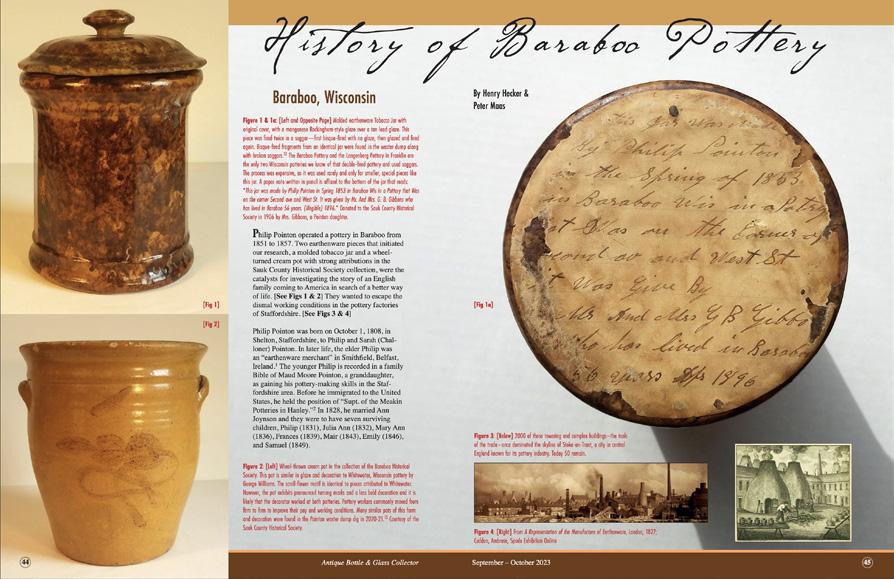 History of Baraboo Pottery
Baraboo, Wisconsin
By Henry Hecker &
Peter Maas
Figure 1 & 1a: [Left and Opposite Page] Molded earthenware Tobacco Jar with
original cover, with a manganese Rockingham-style glaze over a tan lead glaze. This
piece was fired twice in a saggar—first bisque-fired with no glaze, then glazed and fired
again. Bisque-fired fragments from an identical jar were found in the waster dump along
with broken saggars. The Baraboo Pottery and the Langenberg Pottery in Franklin are
the only two Wisconsin potteries we know of that double-fired pottery and used saggars.
The process was expensive, so it was used rarely and only for smaller, special pieces like
this jar. A paper note written in pencil is affixed to the bottom of the jar that reads:
"This jar was made by Philip Pointon in Spring 1853 in Baraboo Wis in a Pottery that Was
on the corner Second ave and West St. It was given by Mr. And Mrs. G. B. Gibbons who
has lived in Baraboo 56 years. (illegible) 1896." Donated to the Sauk County Historical
Society in 1906 by Mrs. Gibbons, a Pointon daughter.
Philip Pointon operated a pottery in Baraboo from
1851 to 1857. Two earthenware pieces that initiated
our research, a molded tobacco jar and a wheel-
turned cream pot with strong attributions in the
Sauk County Historical Society collection, were the
catalysts for investigating the story of an English
family coming to America in search of a better way
of life. [See Figs 1 & 2] They wanted to escape the
dismal working conditions in the pottery factories
of Staffordshire. [See Figs 3 & 4]
Philip Pointon was born on October 1, 1808, in
Shelton, Staffordshire, to Philip and Sarah (Chal-
loner) Pointon. In later life, the elder Philip was
an "earthenware merchant" in Smithfield, Belfast,
Ireland.1 The younger Philip is recorded in a family
Bible of Maud Moore Pointon, a granddaughter,
as gaining his pottery-making skills in the Staf-
fordshire area. Before he immigrated to the United
States, he held the position of "Supt. of the Meakin
Potteries in Hanley."2 In 1828, he married Ann
Joynson and they were to have seven surviving
children, Philip (1831), Julia Ann (1832), Mary Ann
(1836), Frances (1839), Mair (1843), Emily (1846),
and Samuel (1849).
Figure 2: [Left] Wheel-thrown cream pot in the collection of the Baraboo Historical
Society. This pot is similar in glaze and decoration to Whitewater, Wisconsin pottery by
George Williams. The scroll-flower motif is identical to pieces attributed to Whitewater.
However, the pot exhibits pronounced turning marks and a less bold decoration and it is
likely that the decorator worked at both potteries. Pottery workers commonly moved from
firm to firm to improve their pay and working conditions. Many similar pots of this form
and decoration were found in the Pointon waster dump dig in 2020-21. Courtesy of the
Sauk County Historical Society.
[Fig 1]
[Fig 2]
[Fig 1a]
This Jar was
By Philip Pointon
in the Spring of 1853
in Baraboo Wis in a Potry
at Was on the Corner of
econd av and West St
it Was Give By
Mr And Mrs G B Gibbo
ho has lived in Baraboo
56 years 1896
Figure 3: [Below] 2000 of these towering and complex buildings—the tools
of the trade—once dominated the skyline of Stoke-on-Trent, a city in central
England known for its pottery industry. Today 50 remain.
Figure 4: [Right] From A Representation of the Manufacture of Earthenware, London, 1827;
Calden, Ambrose, Spode Exhibition Online
44
Antique Bottle & Glass Collector
September – October 2023
45